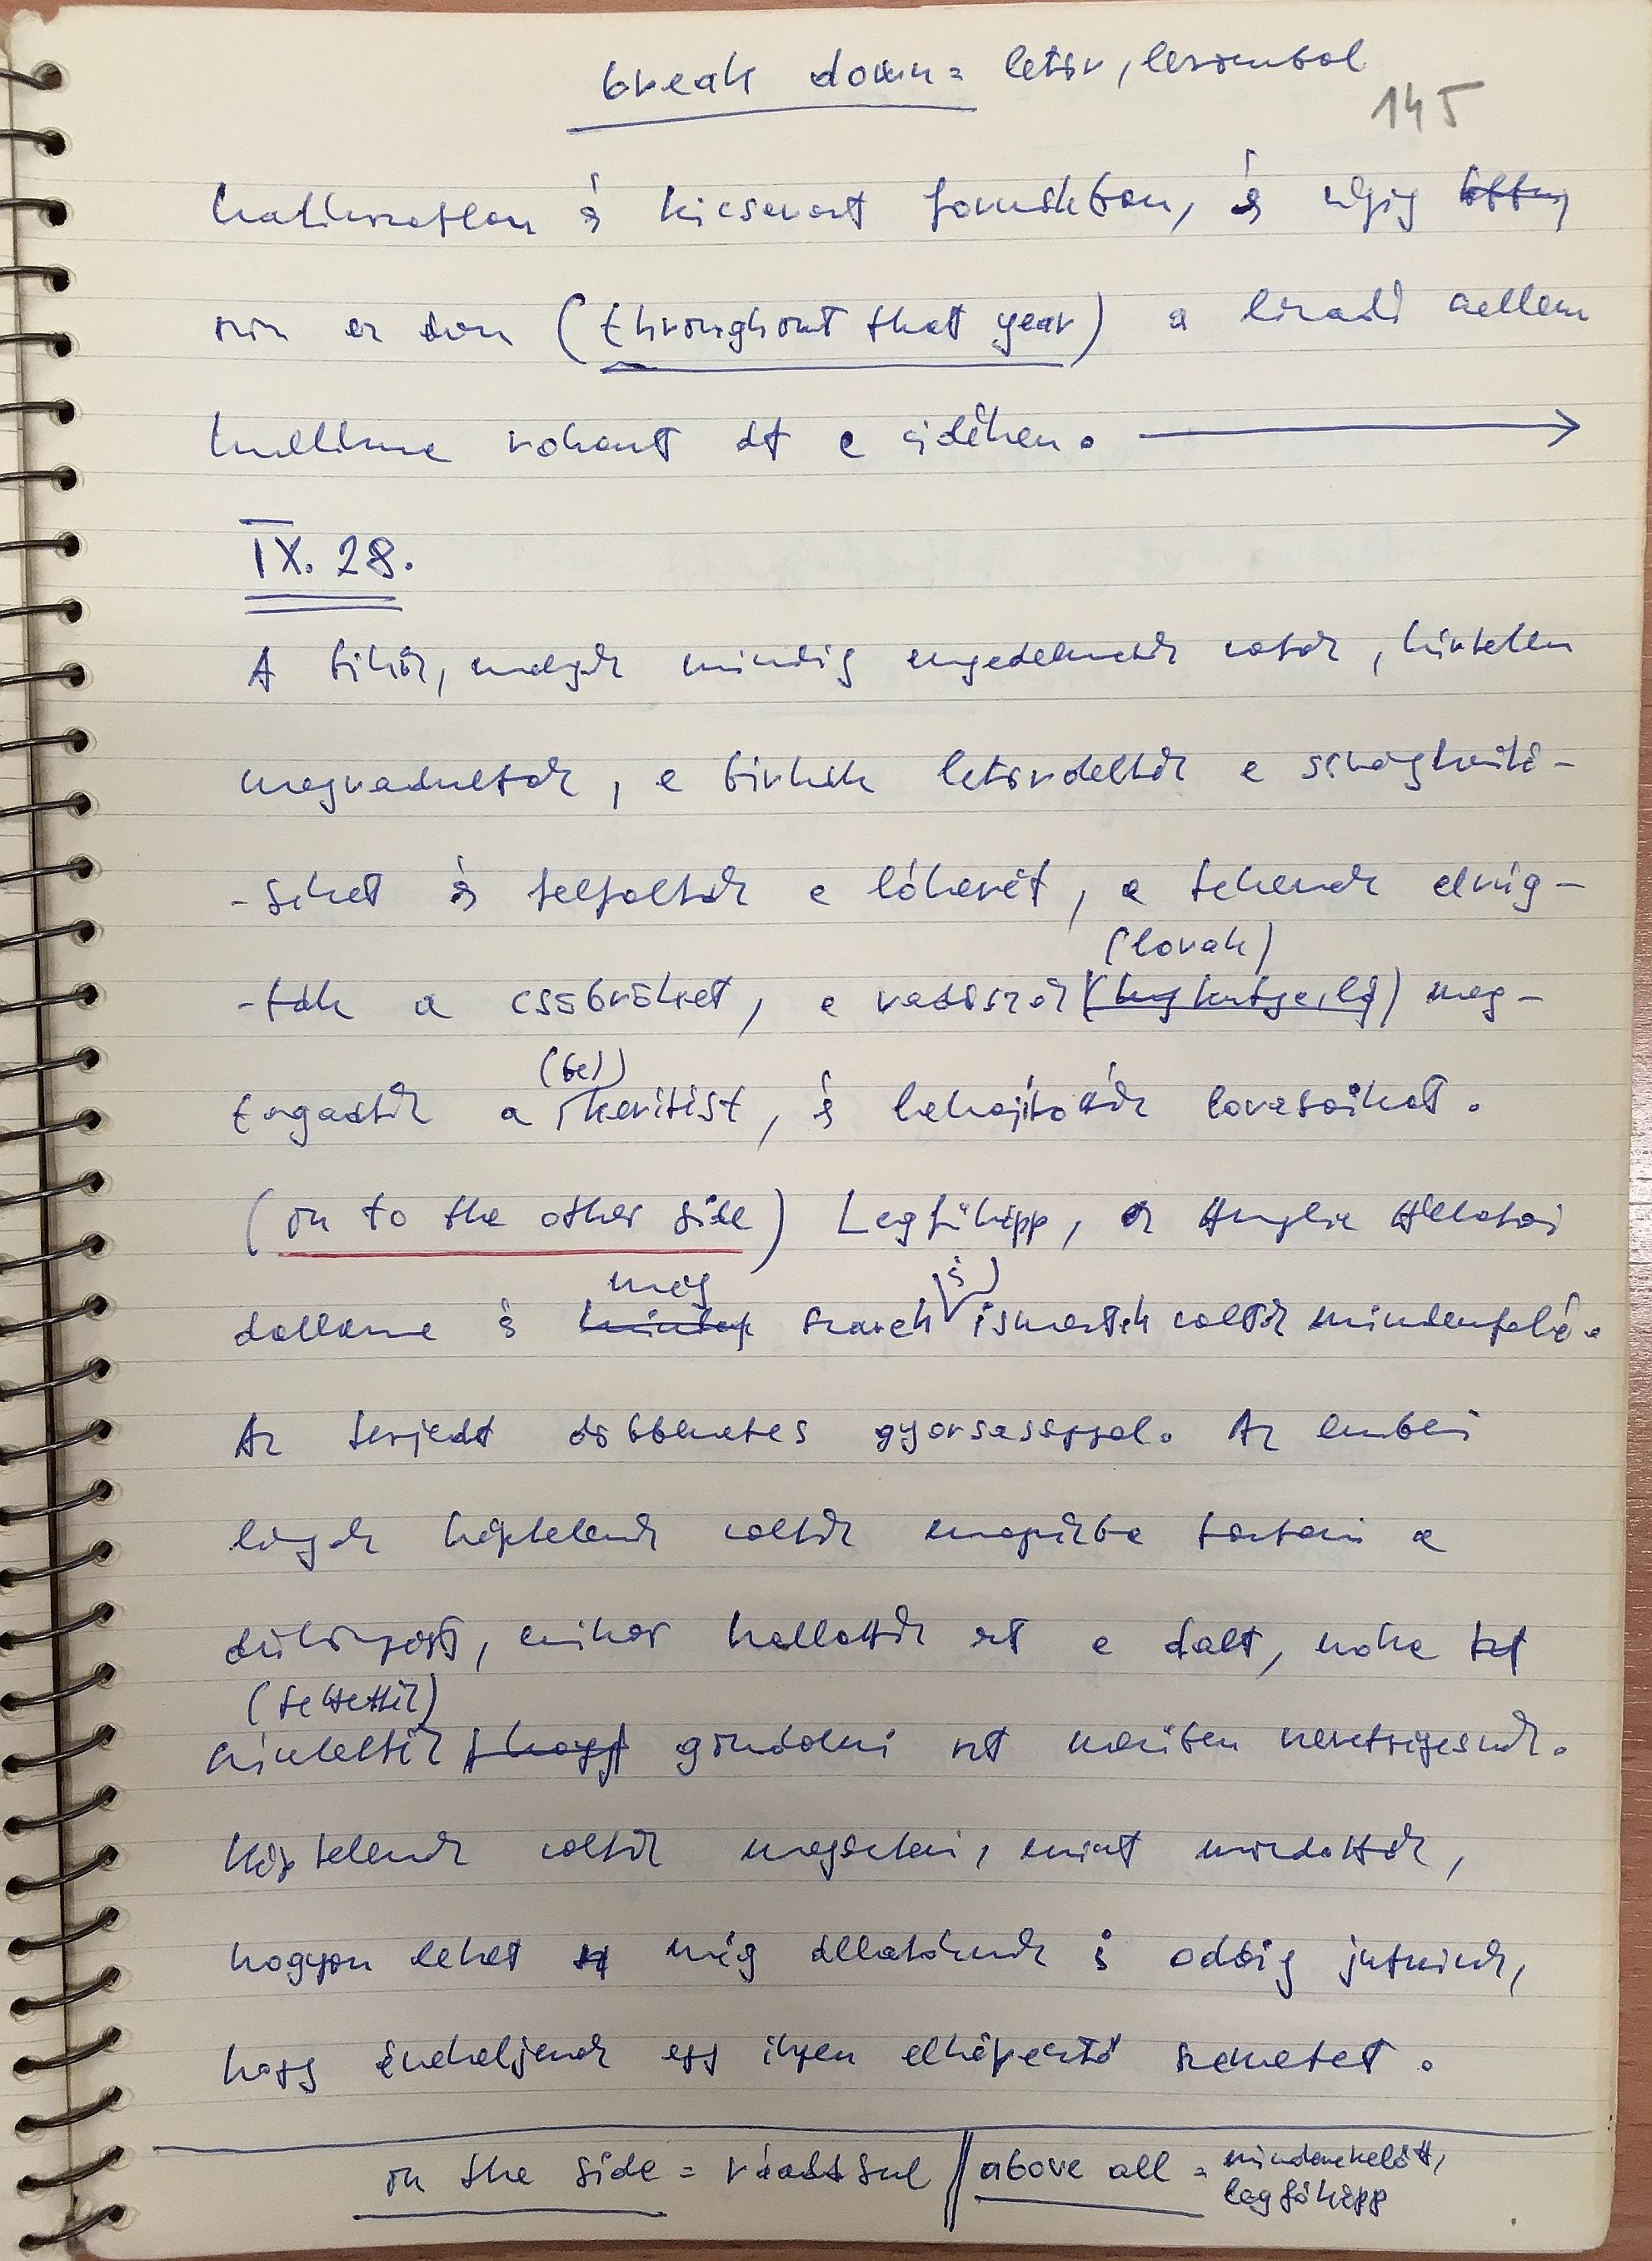 break down = letör, lerombol
145
határozatlan és kicsavart formákban, és végig
azon az éven (throughout that year) a lázadó
hulláma rohant át a vidéken.
IX. 28.
A bikák, melyek mindig engedelmesek voltak, hirtelen
megvadultak, a birkák letördelték a
és felfalták a lóherét, a tehenek elrúg-
-ták a csöbröket, a vadászok (lovak) meg-
tagadták a (be) kerítést, és behajították lovasaikat.
(on to the other side) Legfőképp, az Anglia Állatai
dallama és még szavak (is) ismertek voltak mindenfelé.
Az terjedt döbbenetes gyorsasággal. Az emberi
lények képtelenek voltak magukba tartani a
dühöngést, mikor hallották ezt a dalt, noha
(tettették)
színlelték gondolni azt merőben nevetségesnek.
Képtelenek voltak megérteni, mint mondották,
hogyan lehet még állatoknak is odáig jutniuk,
hogy énekeljenek egy ilyen elképesztő szemetet.
on the side = ráadásul || above all = mindenekelőtt,
legfőképp